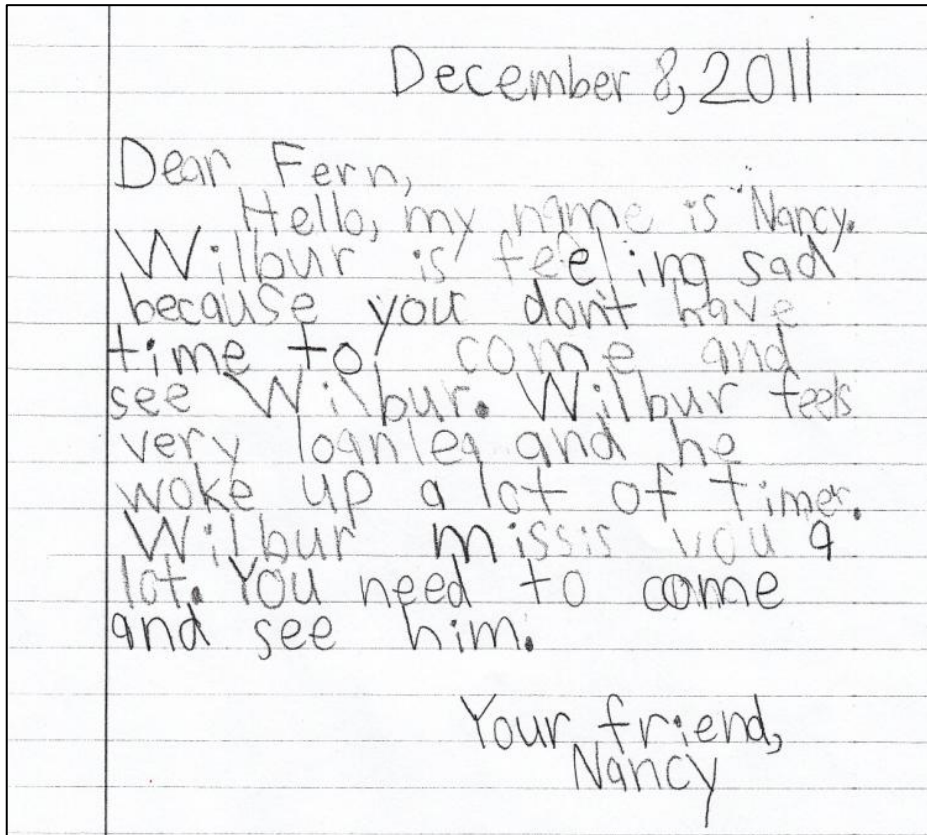 December 8, 2011
Dear Fern,
Hello, my name is Nancy.
Wilbur is feeling sad
because you don't have
time to come and
see Wilbur. Wilbur feels
very loanlea and he
woke up a lot of timer.
Wilbur missis you a
lot. You need to come
and see him.
Your friend,
Nancy